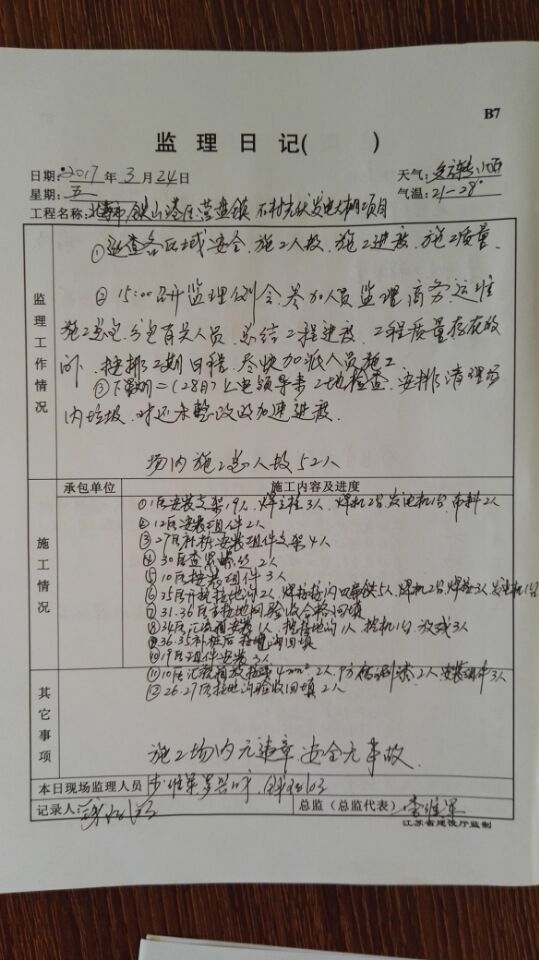 B7
监理日记( )
日期: 2017年3月24日
天气:
星期: 五
气温: 21-28°
工程名称: 北海市铁山港区营盘镇 石村光伏发电大棚项目
监理工作情况
①巡查各区域安全、施工人数、施工进度、施工质量.
② 15:00召开监理例会, 参加人员监理, 商务运维
施工总包, 分包有关人员, 总结工程进度, 工程质量存在的
问 工期日程, 尽快加派人员施工
③下 二(28日) 领导来工地检查, 安排清理场
内垃圾, 对还未整改的加速进度.
场内施工总人数52人
承包单位
施工内容及进度
施工情况
①1区安装支架19人、焊立柱3人、焊机2台发电机1台、吊料2人
②12区安装组件2人
③27区补桩安装组件支架4人
④30区查累螺丝2人
⑤10区 组件3人
⑥35区开挖接地沟2人, 焊接接 扁铁5人, 焊机2台, 焊接3人发电机1台
⑦31.36区 接地网验收合格回填
⑧34区汇流箱安装1人, 挖接地沟1人, 挖机1台, 放线3人
⑨36.35补桩后接地沟回填
⑩19区组件安装3人
⑪10区汇流箱放接线4mm² 2人, 2人, 安装组件3人
⑫26.27区接地沟验收回填 2人
其它事项
施工场内无违章, 安全无事故.
本日现场监理人员
记录人:
总监（总监代表） 李维军
江苏省建设厅监制